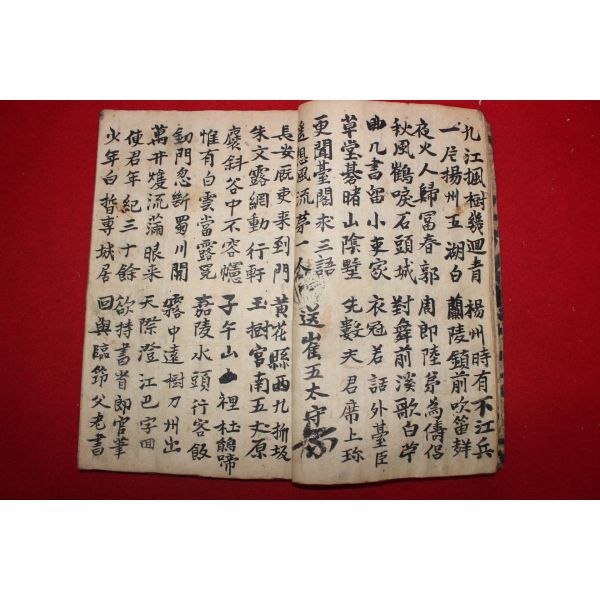 九江楓樹幾迴青 揚州時有不江兵
一片揚州五湖白 蘭陵鎮前吹笛聲
夜火人歸富春郭 周郎陸弟為儔侶
秋風鶴唳石頭城 對舞前溪歌白苧
曲几書留小吏家 衣冠若話外臺臣
草堂碁睹山陰墅 先數夫君席上珍
更聞臺閣求三語
遙想風流第一人 送崔五太守
長安厩吏來到門 黃花縣西九折坂
朱文露網動行軒 玉樹宮南五丈原
褒斜谷中不容幰 子午山裡杜鵑啼
惟有白雲當露冕 嘉陵水頭行客飯
釰門忽斷蜀川開 霧中遠樹刀州出
萬井雙流滿眼來 天際澄江巴字回
使君年紀三十餘 欲持書省郎官筆
少年白皙專城居 回與臨節父老書